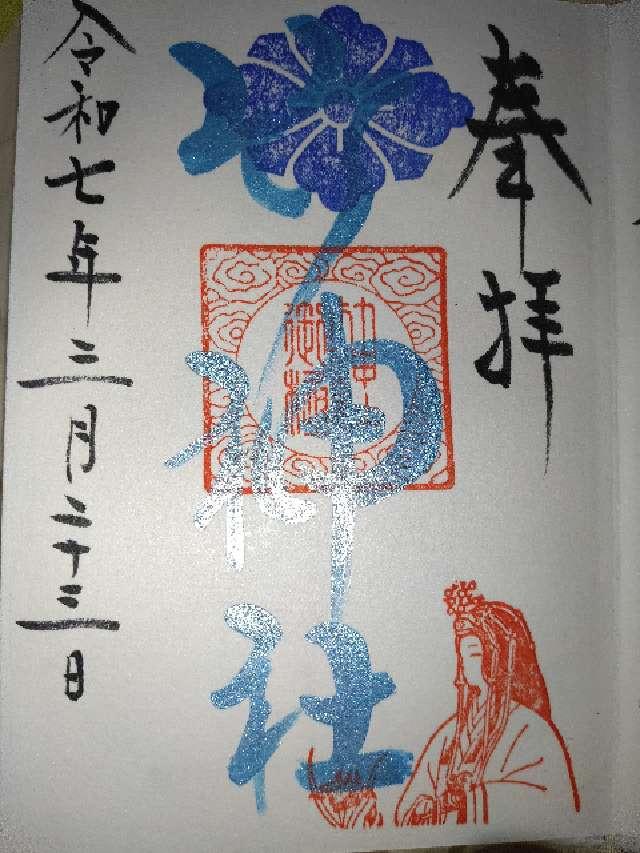 奉拝
神社
令和七年三月二十三日